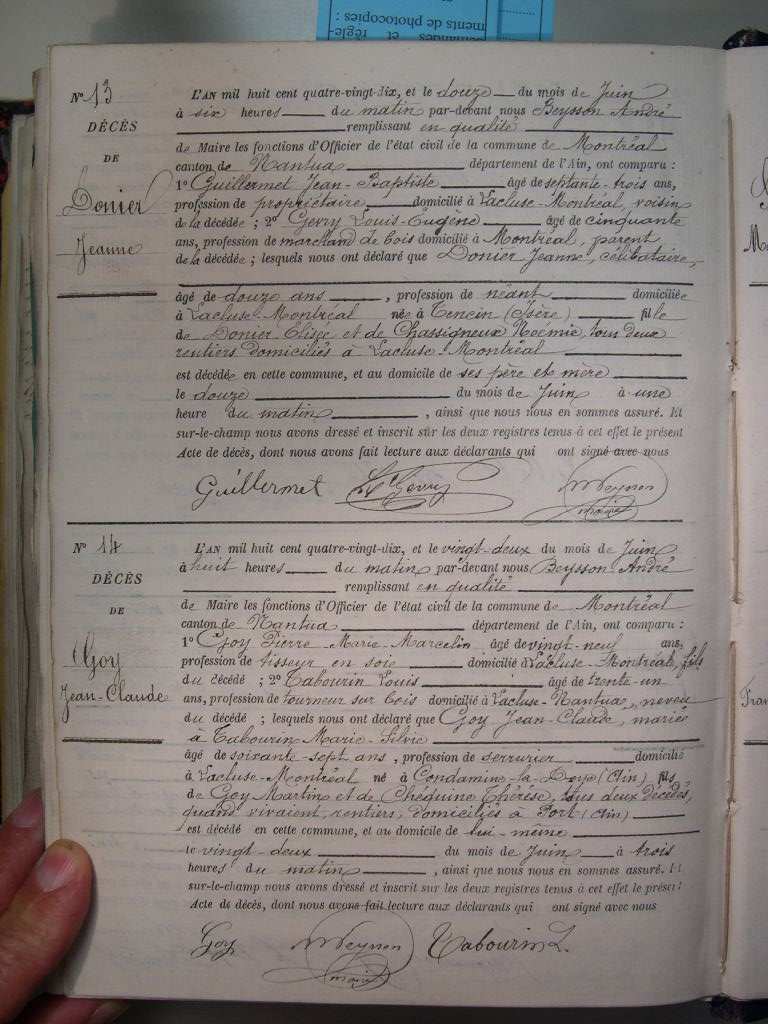 ments de photocopies :
et règle-
Nº 13
DÉCÈS
DE
Donier
Jeanne
L'AN mil huit cent quatre-vingt-dix, et le douze du mois de Juin
à six heures du matin par-devant nous Beysson André
remplissant en qualité
de Maire les fonctions d'Officier de l'état civil de la commune de Montréal
canton de Nantua département de l'Ain, ont comparu :
1º Guillermet Jean-Baptiste âgé de septante-trois ans,
profession de propriétaire, domicilié à Lacluse-Montréal, voisin
de la décédée ; 2º Gevry Louis-Eugène âgé de cinquante
ans, profession de marchand de bois domicilié à Montréal, parent
de la décédée ; lesquels nous ont déclaré que Donier Jeanne, célibataire,
âgé de douze ans, profession de néant domiciliée
à Lacluse-Montréal née à Tencin (Isère) fille
de Donier Elisée et de Chassigneux Noémie, tous deux
rentiers domiciliés à Lacluse-Montréal
est décédée en cette commune, et au domicile de ses père et mère
le douze du mois de Juin à une
heure du matin, ainsi que nous nous en sommes assuré. Et
sur-le-champ nous avons dressé et inscrit sur les deux registres tenus à cet effet le présent
Acte de décès, dont nous avons fait lecture aux déclarants qui ont signé avec nous
Guillermet Gevry
maire
Nº 14
DÉCÈS
DE
Goy
Jean-Claude
L'AN mil huit cent quatre-vingt-dix, et le vingt-deux du mois de Juin
à huit heures du matin par-devant nous Beysson André
remplissant en qualité
de Maire les fonctions d'Officier de l'état civil de la commune de Montréal
canton de Nantua département de l'Ain, ont comparu :
1º Goy Pierre-Marie-Marcelin âgé de vingt-neuf ans,
profession de tisseur en soie domicilié à Lacluse-Montréal, fils
du décédé ; 2º Tabourin Louis âgé de trente-un
ans, profession de tourneur sur bois domicilié à Lacluse-Nantua, neveu
du décédé ; lesquels nous ont déclaré que Goy Jean-Claude, marié
à Tabourin Marie-Silvie
âgé de soixante-sept ans, profession de serrurier domicilié
à Lacluse-Montréal né à Condamine-la-Doye (Ain) fils
de Goy Martin et de Chéquine Thérèse, tous deux décédés,
quand vivaient, rentiers, domiciliés à Port (Ain)
est décédé en cette commune, et au domicile de lui-même
le vingt-deux du mois de Juin à trois
heures du matin, ainsi que nous nous en sommes assuré. Et
sur-le-champ nous avons dressé et inscrit sur les deux registres tenus à cet effet le présent
Acte de décès, dont nous avons fait lecture aux déclarants qui ont signé avec nous
Goy Tabourin L.
maire